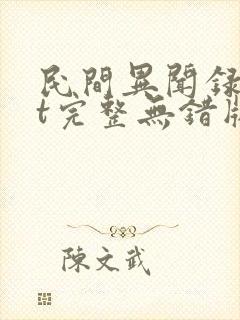 民間異聞録
t完整無錯版
陳文武